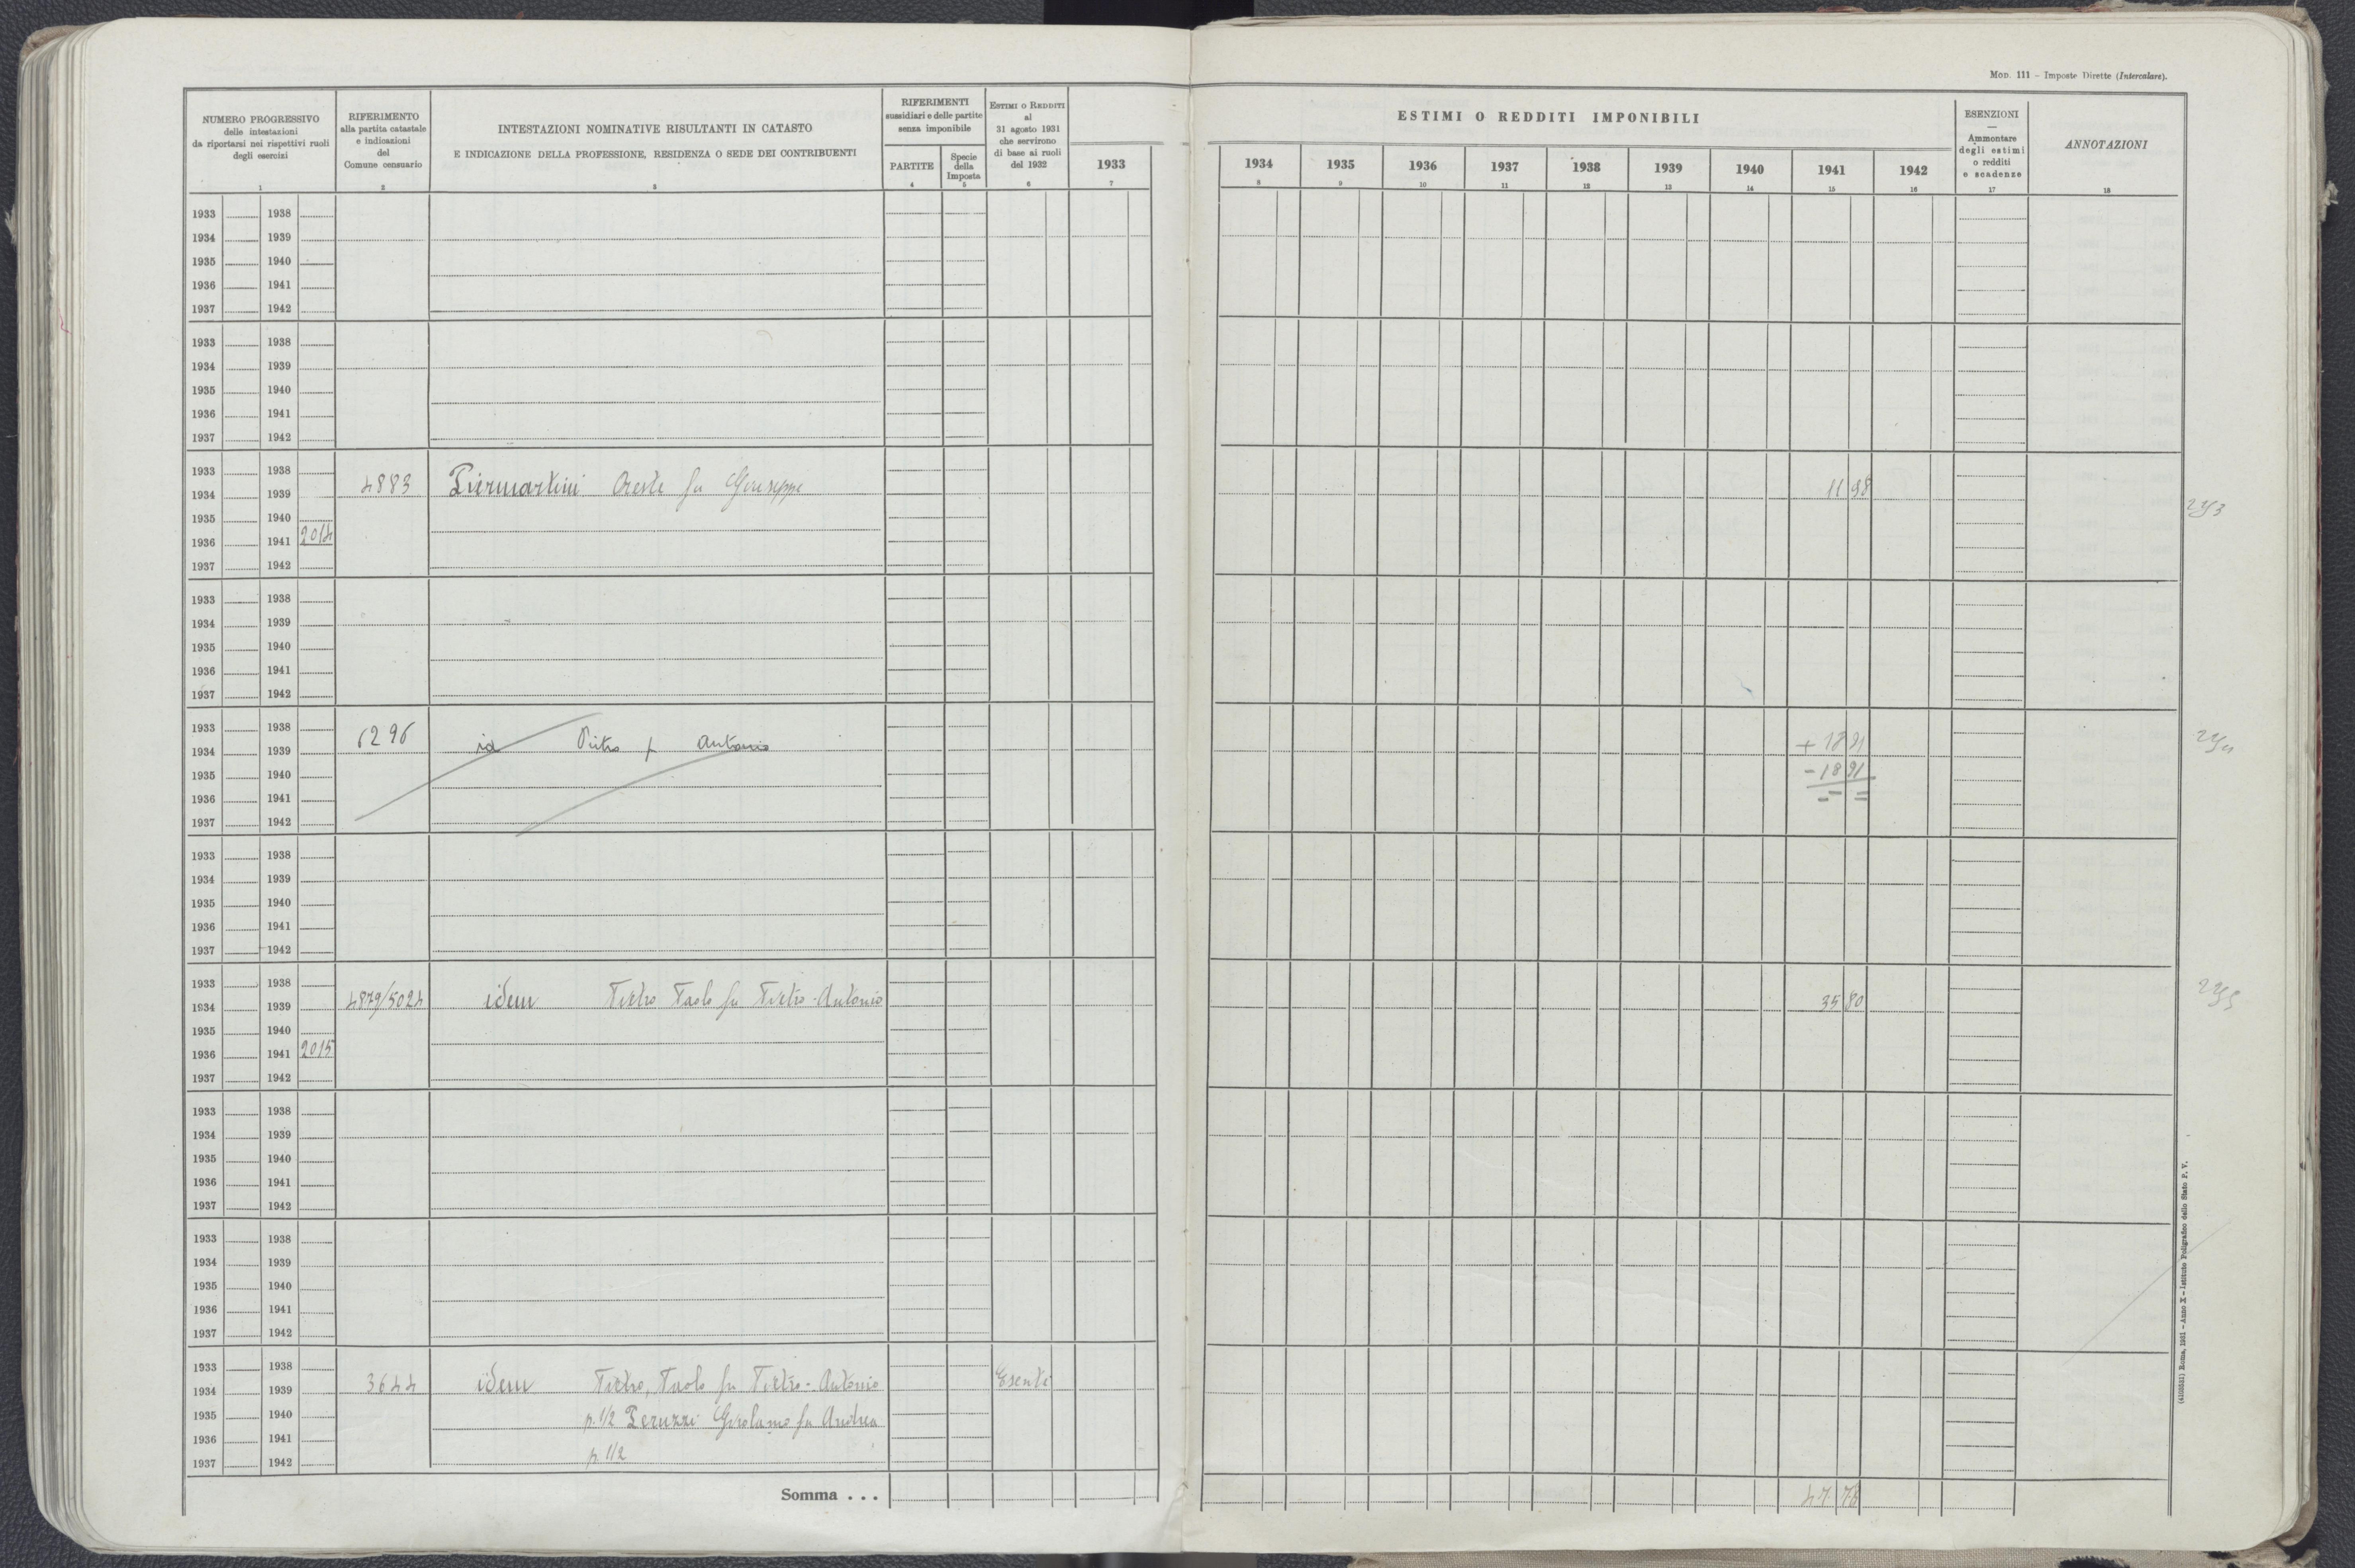 MOD. 111 – Imposte Dirette (Intercalare).
NUMERO PROGRESSIVO
delle intestazioni
da riportarsi nei rispettivi ruoli
degli esercizi
1
RIFERIMENTO
alla partita catastale
e indicazioni
del
Comune censuario
2
INTESTAZIONI NOMINATIVE RISULTANTI IN CATASTO
E INDICAZIONE DELLA PROFESSIONE, RESIDENZA O SEDE DEI CONTRIBUENTI
3
RIFERIMENTI
sussidiari e delle partite
senza imponibile
PARTITE
4
Specie
della
Imposta
5
ESTIMI O REDDITI
al
31 agosto 1931
che servirono
di base ai ruoli
del 1932
6
1933
7
ESTIMI O REDDITI IMPONIBILI
1934 1935 1936 1937 1938 1939 1940 1941 1942
8 9 10 11 12 13 14 15 16
ESENZIONI
—
Ammontare
degli estimi
o redditi
e scadenze
17
ANNOTAZIONI
18
1933 1938
1934 1939
1935 1940
1936 1941
1937 1942
1933 1938
1934 1939
1935 1940
1936 1941
1937 1942
1933 1938
1934 1939 4883 Piermartini Oreste fu Giuseppe 11 98
1935 1940
1936 1941 2014
1937 1942
1933 1938
1934 1939
1935 1940
1936 1941
1937 1942
1933 1938
1934 1939 6296 id Pietro f Antonio + 18 91
1935 1940 - 18 91
1936 1941 = =
1937 1942
1933 1938
1934 1939
1935 1940
1936 1941
1937 1942
1933 1938
1934 1939 4879/5024 idem Pietro Paolo fu Pietro-Antonio 35 80
1935 1940
1936 1941 2015
1937 1942
1933 1938
1934 1939
1935 1940
1936 1941
1937 1942
1933 1938
1934 1939
1935 1940
1936 1941
1937 1942
1933 1938
1934 1939 3644 idem Pietro, Paolo fu Pietro-Antonio Esenti
1935 1940 p. 1/2 Peruzzi Girolamo fu Andrea
1936 1941
1937 1942 p. 1/2
Somma . . . 47 78
(4103531) Roma, 1931 – Anno X – Istituto Poligrafico dello Stato P. V.